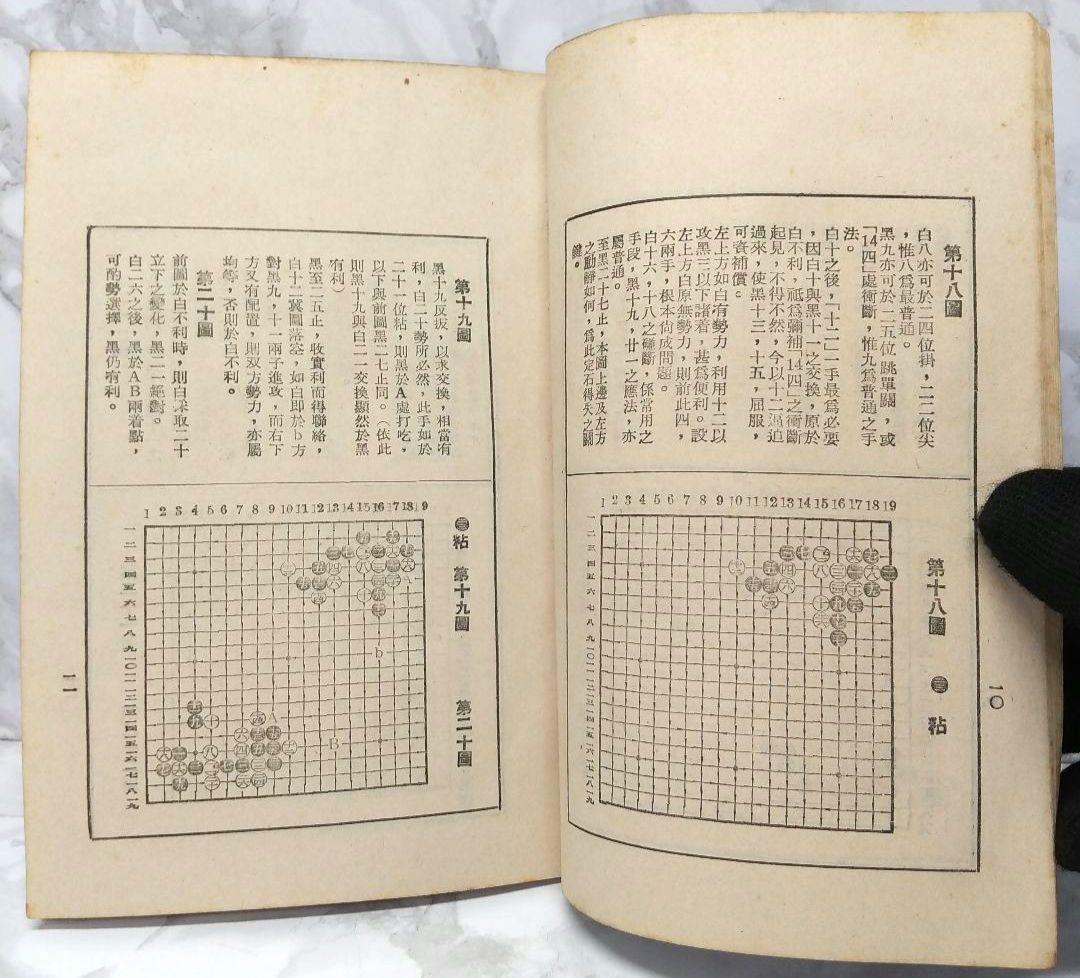 第十八圖
白八亦可於二四位掛，二二位尖
，惟八爲最普通。
黑九亦可於二五位跳單關，或
「14四」處衝斷，惟九爲普通之手
法。
白十之後，「十二」一手最爲必要
，因白十與黑十一之交換，原於
白不利，祗爲彌補「14四」之衝斷
起見，不得不然，今以十二逼迫
過來，使黑十三，十五，屈服，
可資補償。
左上方如白有勢力，利用十二以
攻黑三以下諸着，甚爲便利。設
左上方白原無勢力，則前此四，
六兩手，根本尙成問題。
白十六，十八之碰斷，係常用之
手段，黑十九，廿一之應法，亦
屬普通。
至黑二十七止，本圖上邊及左方
之動靜如何，爲此定石得失之關
鍵。
1 2 3 4 5 6 7 8 9 10 11 12 13 14 15 16 17 18 19
一
二
三
四
五
六
七
八
九
一〇
一一
一二
一三
一四
一五
一六
一七
一八
一九
第十八圖
粘
一〇
第十九圖
黑十九反扳，以求交換，相當有
利，白二十勢所必然，此手如於
二十一位粘，則黑於A處打吃，
以下與前圖黑二七止同。（依此
則黑十九與白二一交換顯然於黑
有利）
黑至二五止，收實利而得聯絡，
白十二冀圖落空，如白即於b方
對黑九，十一兩子進攻，而右下
方又有配置，則双方勢力，亦屬
均等，否則於白不利。
第二十圖
前圖於白不利時，則白采取二十
立下之變化，黑二一絕對。
白二六之後，黑於AB兩着點，
可酌勢選擇，黑仍有利。
1 2 3 4 5 6 7 8 9 10 11 12 13 14 15 16 17 18 19
一
二
三
四
五
六
七
八
九
一〇
一一
一二
一三
一四
一五
一六
一七
一八
一九
A
b
A
B
粘
第十九圖
第二十圖
一一